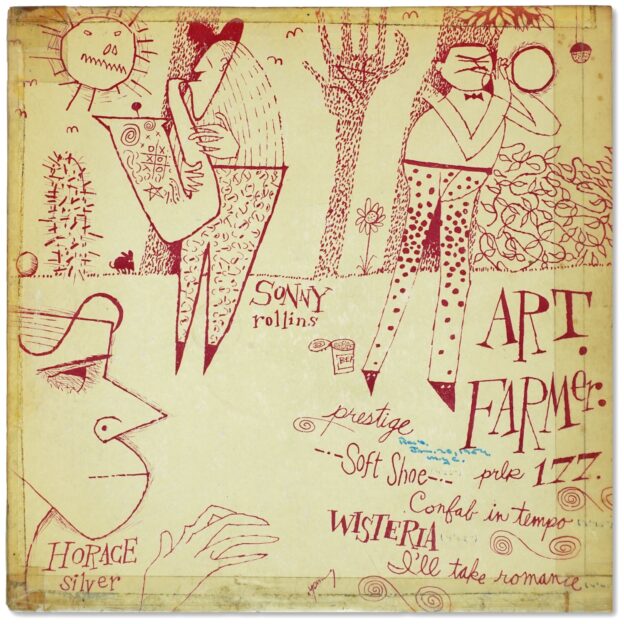 SONNY
rollins
BEA
ART.
FARMer.
prestige
Soft Shoe
prlp 177.
Confab in tempo
WISTERIA
I'll take romance
HORACE
silver